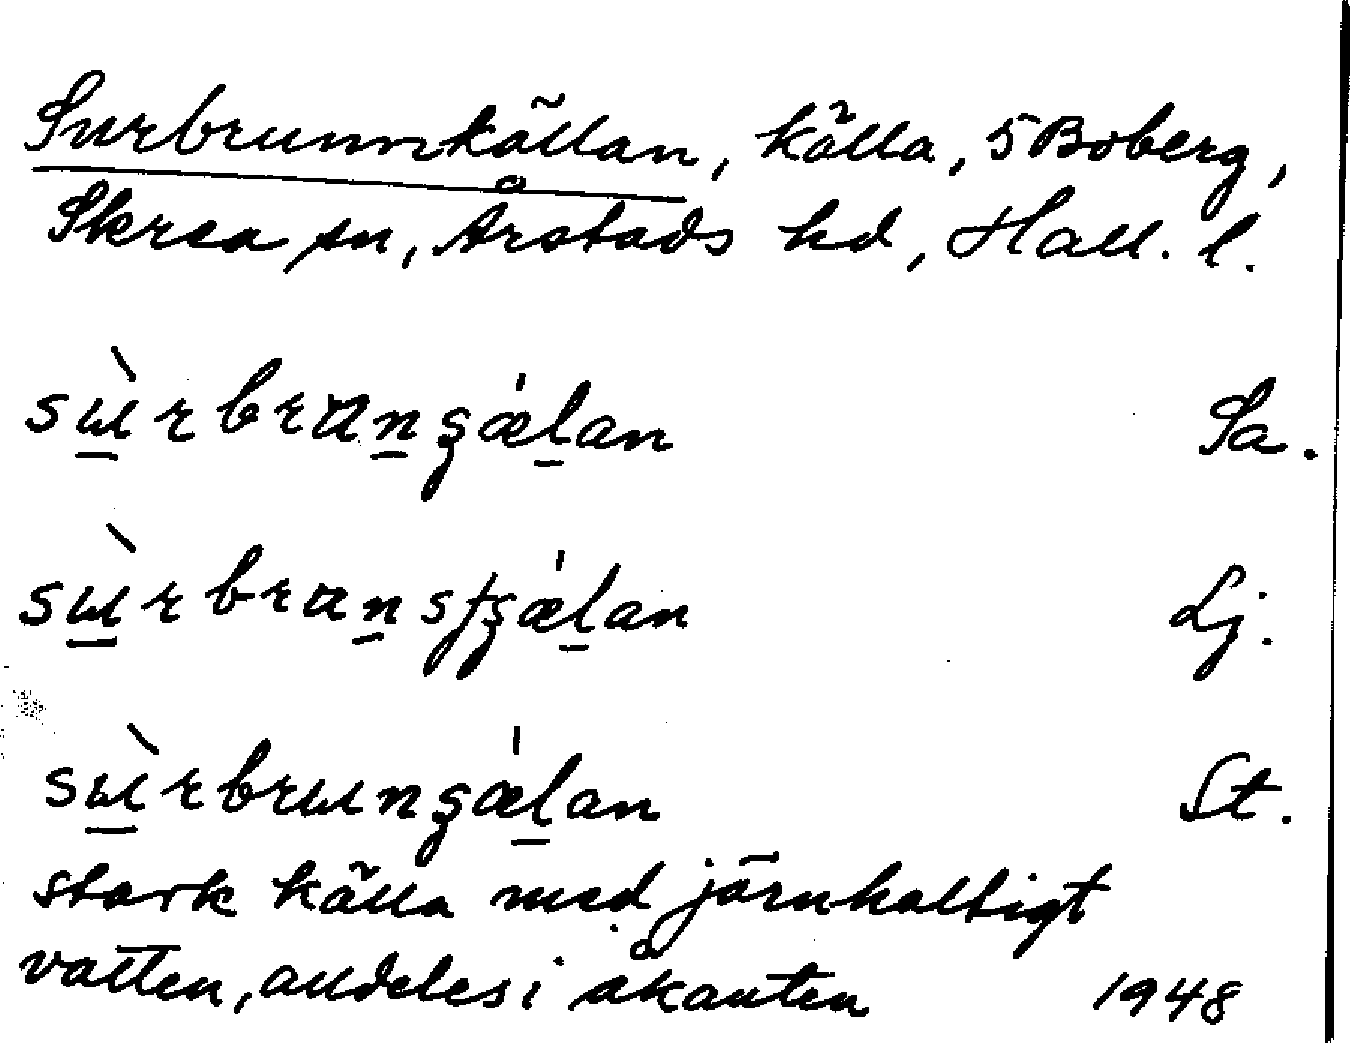 Surbrunnkällan, källa, 5 Boberg,
Skrea sn, Årstads hd, Hall. l.
sɯ̀rbrɑnʒæ̍lan Sa.
sɯ̀rbrɑnsʃʒæ̍lan Lj.
sɯ̀rbrɯnʒæ̍lan St.
stark källa med järnhaltigt
vatten, alldeles i åkanten 1948